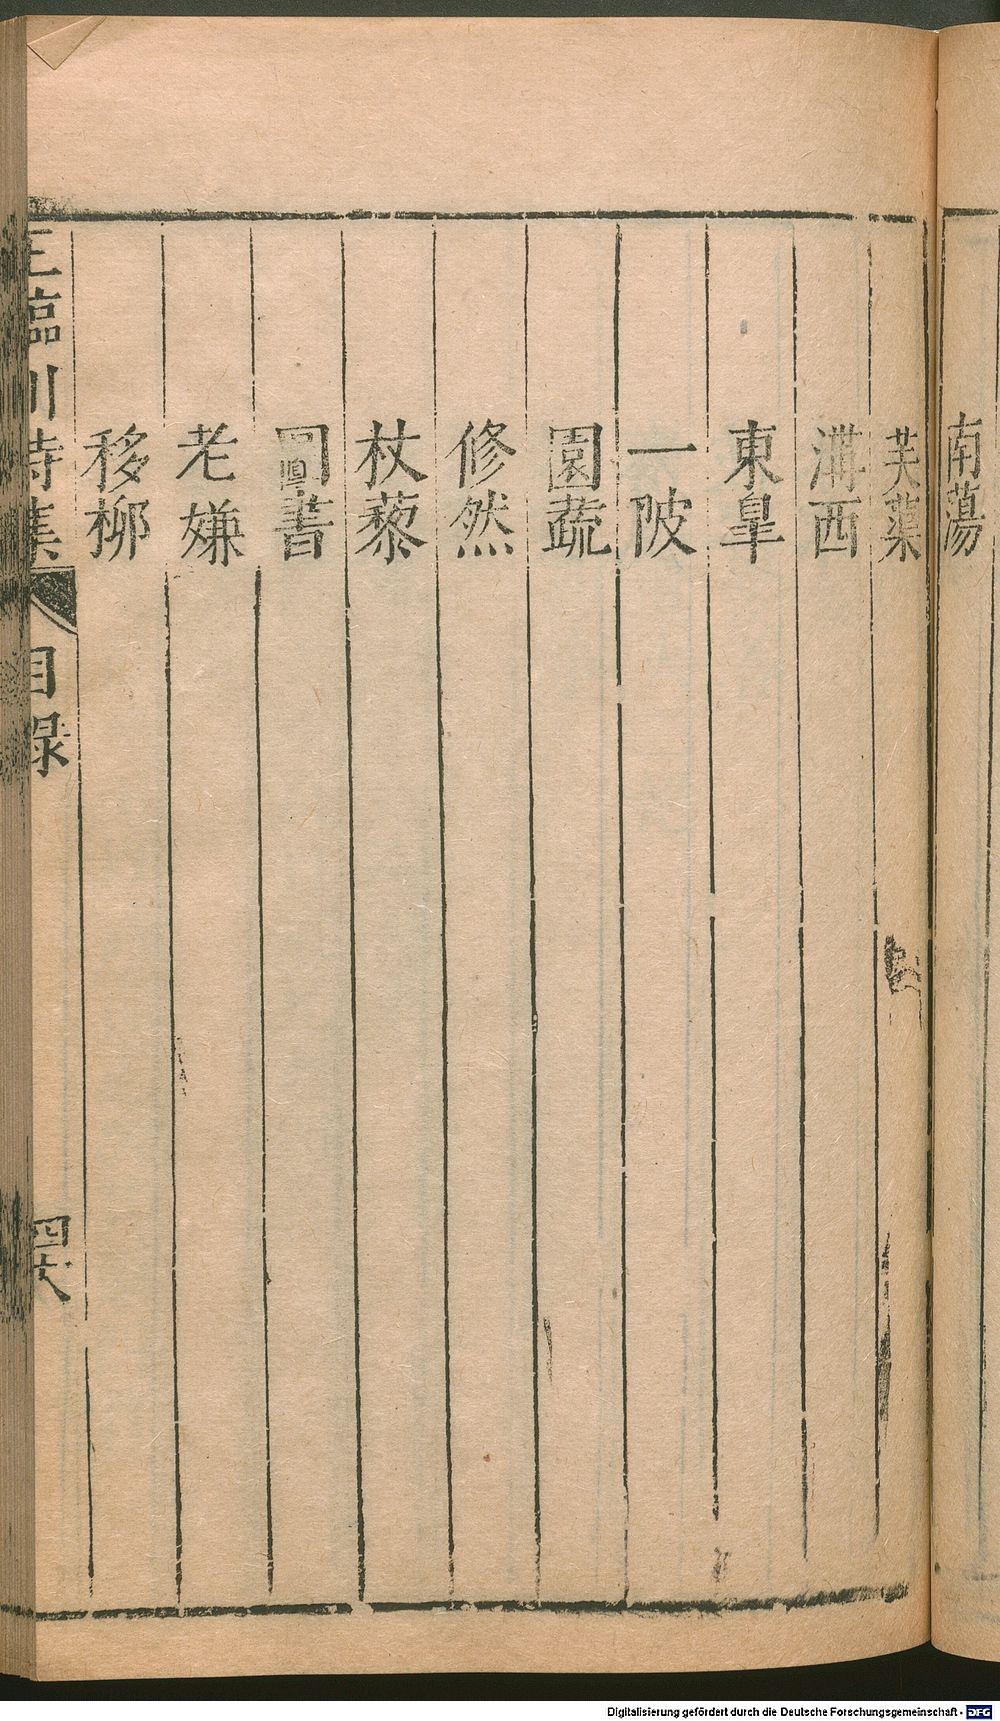 南蕩
芙蕖
溝西
東皐
一陂
園蔬
修然
杖藜
圓書
老嫌
移柳
王臨川詩集 目錄 四六
Digitalisierung gefördert durch die Deutsche Forschungsgemeinschaft - DFG